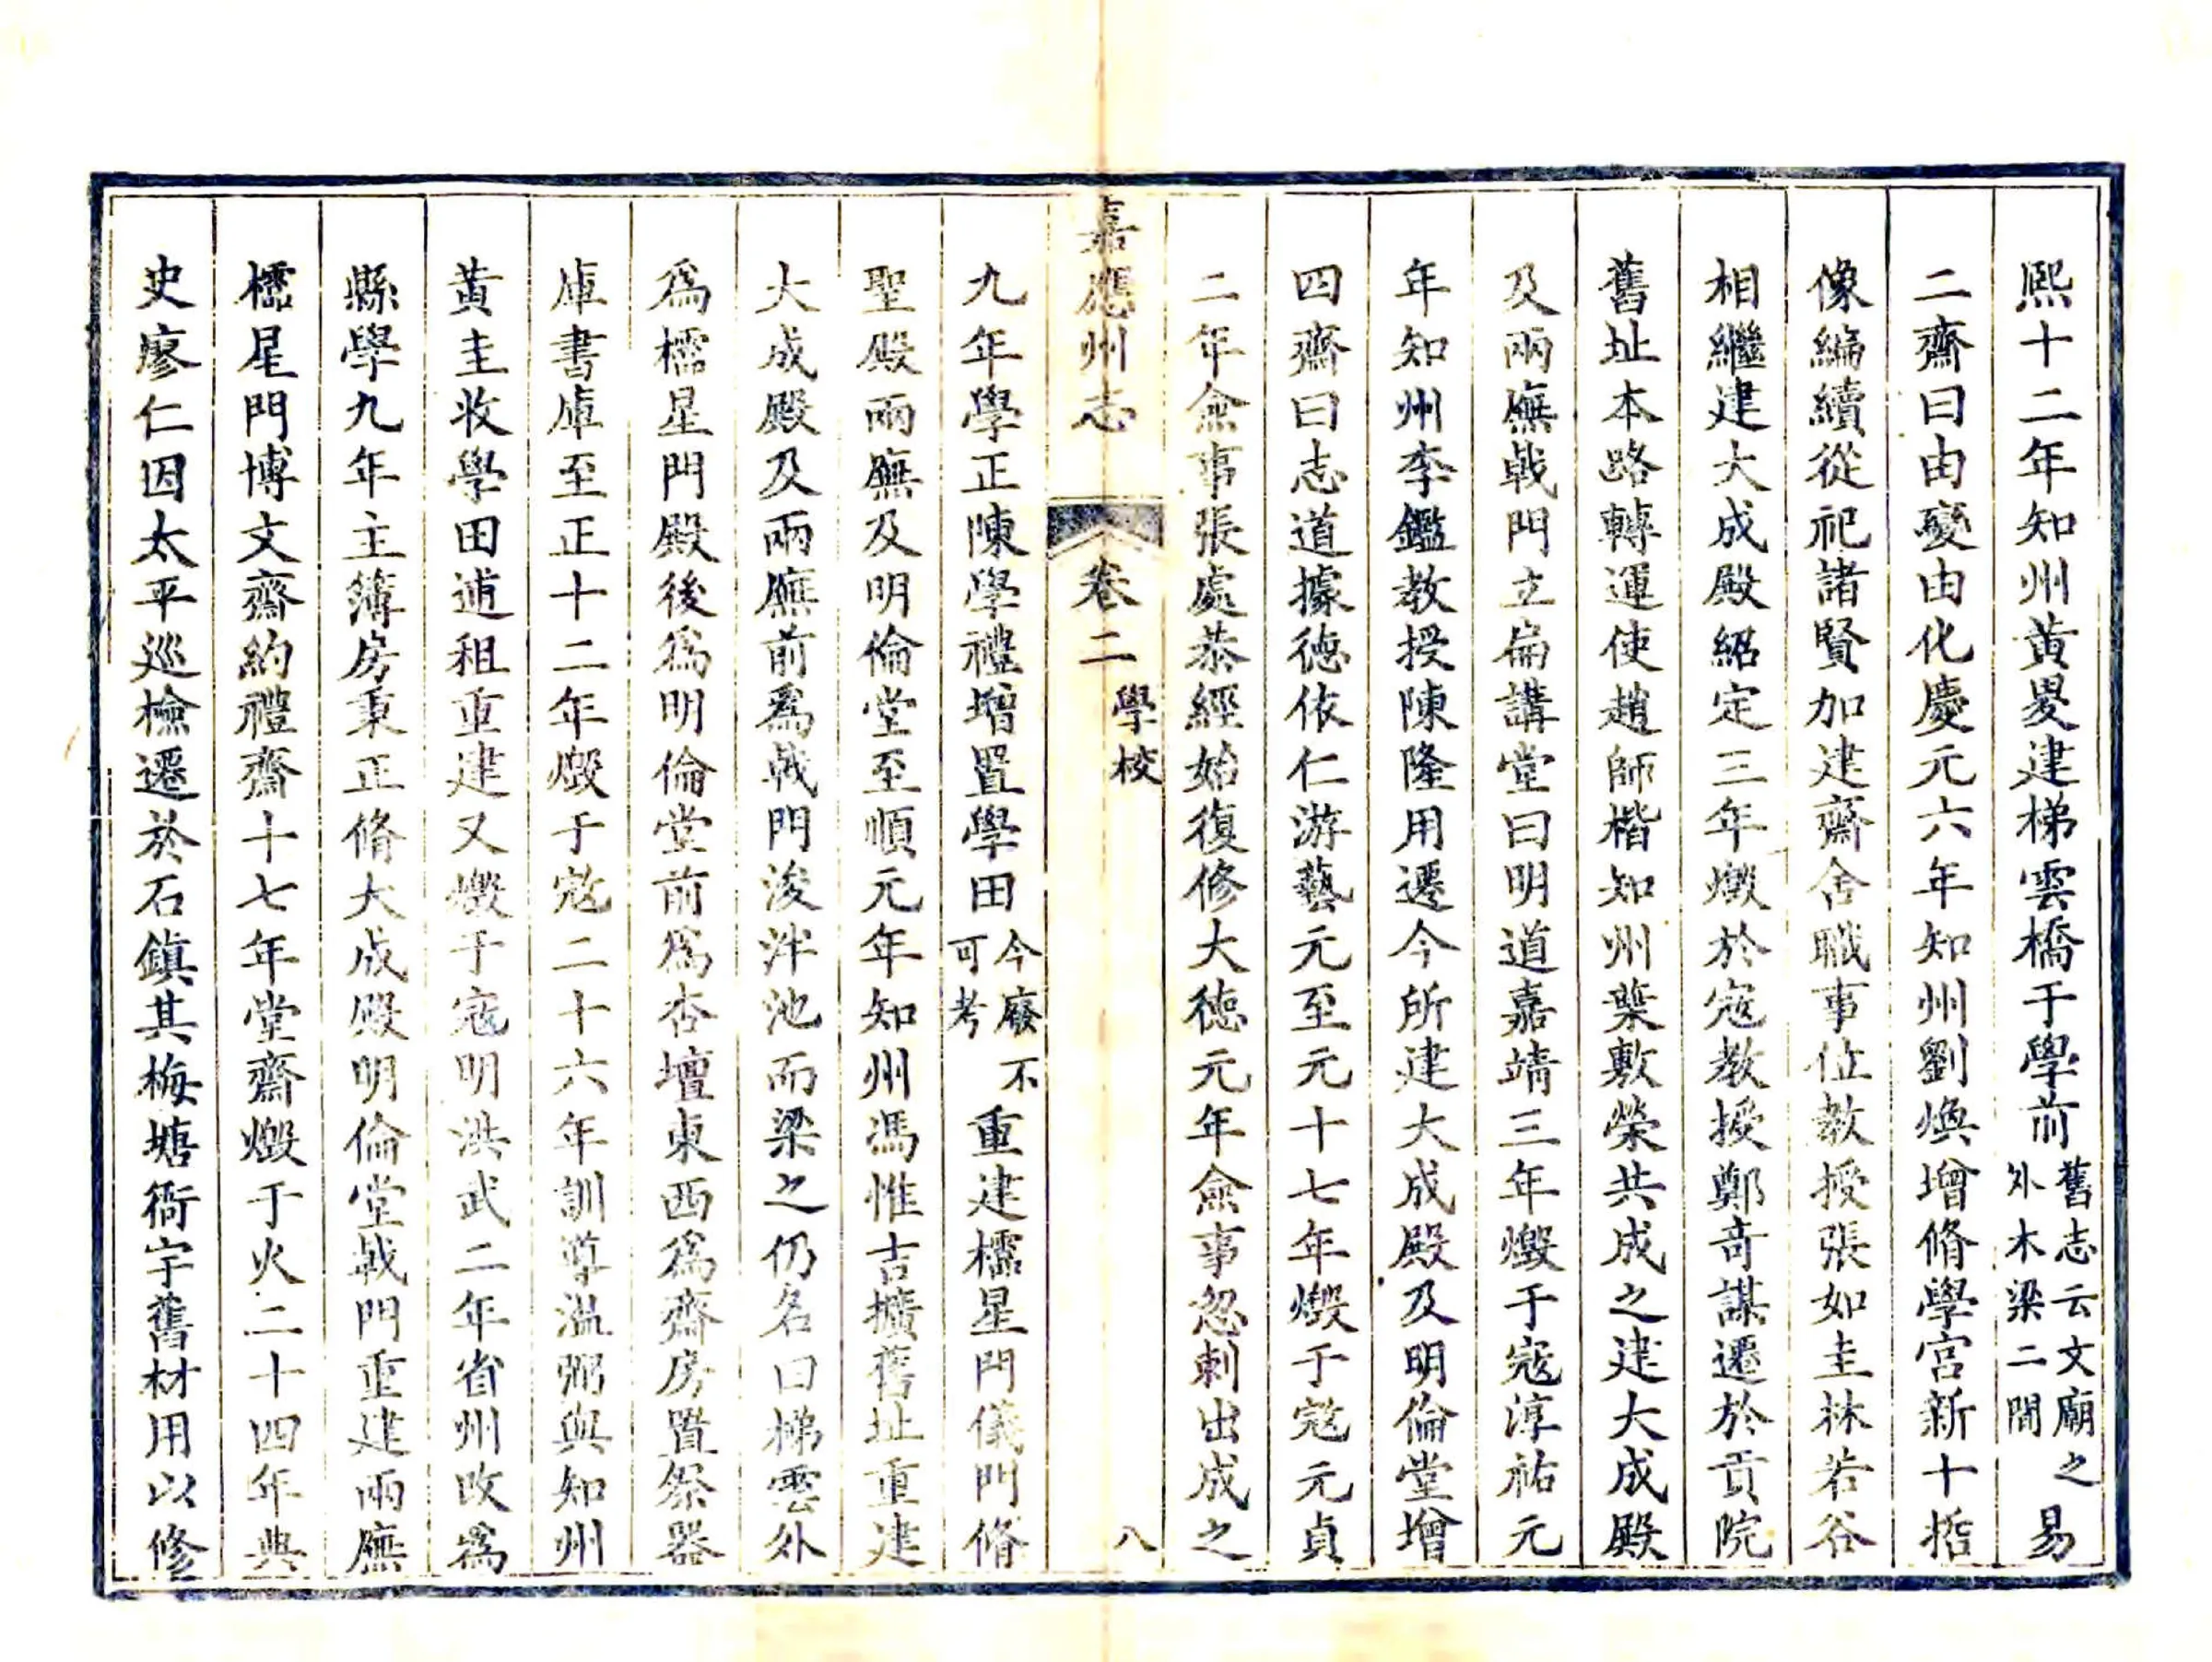 熙十二年知州黄㚟建梯雲橋于學前舊志云文廟之外木梁二間易
二齋曰由變由化慶元六年知州劉煥增脩學宫新十哲
像編續從祀諸賢加建齋舍職事位教授張如圭林若谷
相繼建大成殿紹定三年燬於寇教授鄭奇謀遷於貢院
舊址本路轉運使趙師楷知州葉敷榮共成之建大成殿
及兩廡戟門立扁講堂曰明道嘉靖三年燬于寇淳祐元
年知州李鑑教授陳隆用遷今所建大成殿及明倫堂增
四齋曰志道據德依仁游藝元至元十七年燬于寇元貞
二年僉事張處恭經始復修大德元年僉事忽剌出成之
嘉應州志 卷二 學校 八
九年學正陳學禮增置學田今廢不可考重建櫺星門儀門脩
聖殿兩廡及明倫堂至順元年知州馮惟吉擴舊址重建
大成殿及兩廡前爲戟門浚泮池而梁之仍名曰梯雲外
爲櫺星門殿後爲明倫堂前爲杏壇東西爲齋房置祭器
庫書庫至正十二年燬于寇二十六年訓導溫弼與知州
黄圭收學田逋租重建又燬于寇明洪武二年省州改爲
縣學九年主簿房秉正脩大成殿明倫堂戟門重建兩廡
櫺星門博文齋約禮齋十七年堂齋燬于火二十四年典
史廖仁因太平巡檢遷於石鎮其梅塘衙宇舊材用以修